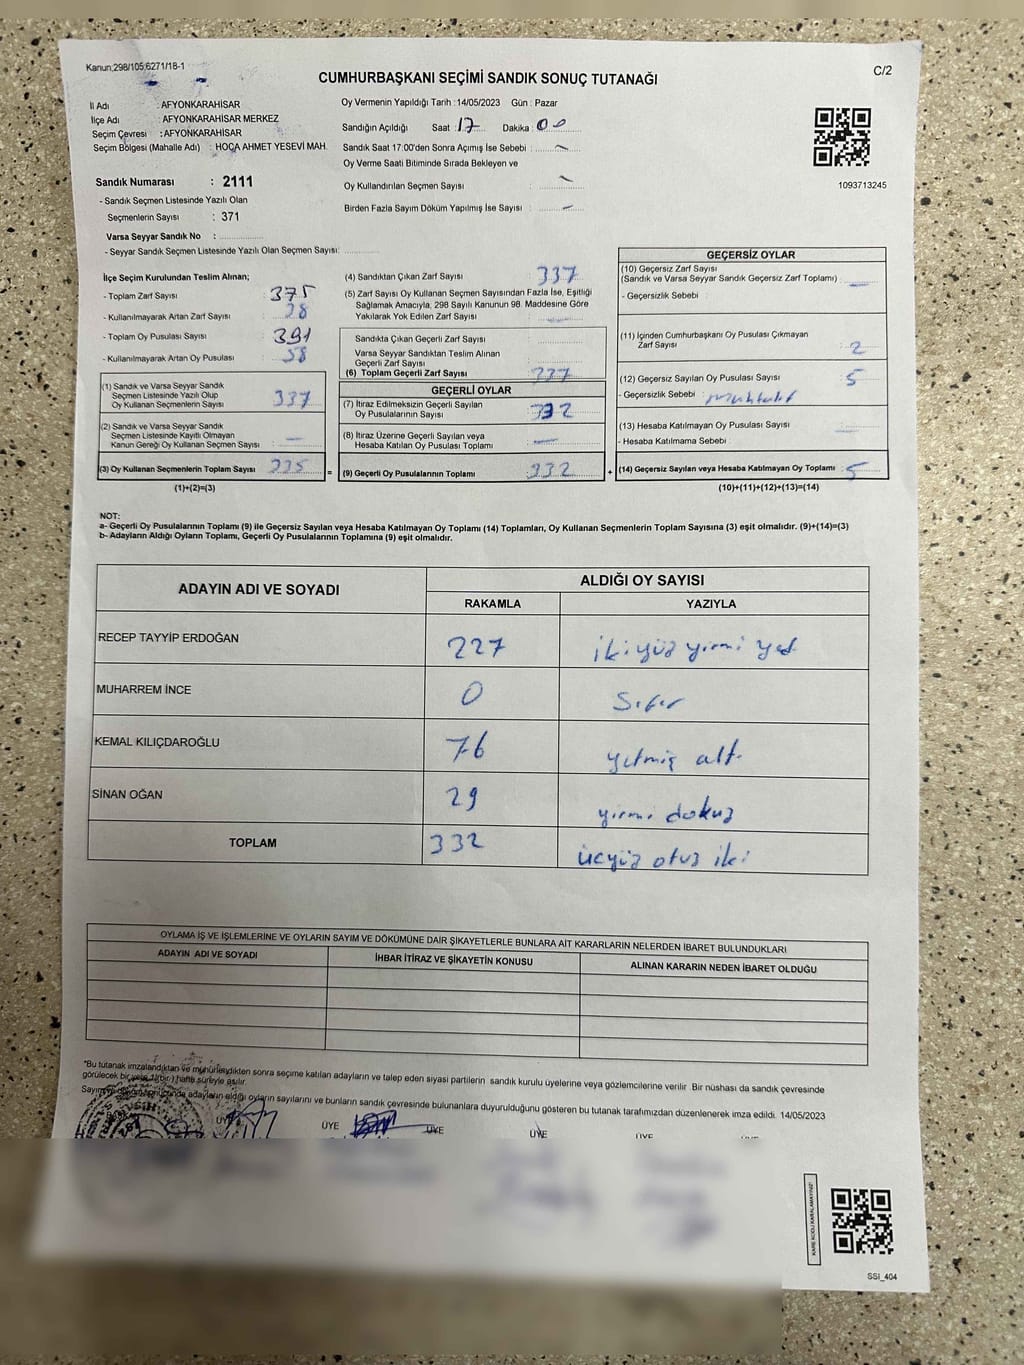 Kanun;298/105;6271/18-1
C/2
CUMHURBAŞKANI SEÇİMİ SANDIK SONUÇ TUTANAĞI
İl Adı : AFYONKARAHİSAR
İlçe Adı : AFYONKARAHİSAR MERKEZ
Seçim Çevresi : AFYONKARAHİSAR
Seçim Bölgesi (Mahalle Adı) : HOCA AHMET YESEVİ MAH.
Oy Vermenin Yapıldığı Tarih :14/05/2023 Gün : Pazar
Sandığın Açıldığı Saat :17 Dakika :00
Sandık Saat 17:00'den Sonra Açımış İse Sebebi :
Oy Verme Saati Bitiminde Sırada Bekleyen ve
Oy Kullandırılan Seçmen Sayısı :
Birden Fazla Sayım Döküm Yapılmış İse Sayısı : –
1093713245
Sandık Numarası : 2111
- Sandık Seçmen Listesinde Yazılı Olan
Seçmenlerin Sayısı : 371
Varsa Seyyar Sandık No :
- Seyyar Sandık Seçmen Listesinde Yazılı Olan Seçmen Sayısı:
İlçe Seçim Kurulundan Teslim Alınan;
- Toplam Zarf Sayısı : 375
- Kullanılmayarak Artan Zarf Sayısı : 38
- Toplam Oy Pusulası Sayısı : 391
- Kullanılmayarak Artan Oy Pusulası : 58
(1) Sandık ve Varsa Seyyar Sandık
Seçmen Listesinde Yazılı Olup
Oy Kullanan Seçmenlerin Sayısı : 337
(2) Sandık ve Varsa Seyyar Sandık
Seçmen Listesinde Kayıtlı Olmayan
Kanun Gereği Oy Kullanan Seçmen Sayısı : —
(3) Oy Kullanan Seçmenlerin Toplam Sayısı =
(1)+(2)=(3)
(4) Sandıktan Çıkan Zarf Sayısı : 337
(5) Zarf Sayısı Oy Kullanan Seçmen Sayısından Fazla İse, Eşitliği
Sağlamak Amacıyla, 298 Sayılı Kanunun 98. Maddesine Göre
Yakılarak Yok Edilen Zarf Sayısı : —
Sandıkta Çıkan Geçerli Zarf Sayısı :
Varsa Seyyar Sandıktan Teslim Alınan
Geçerli Zarf Sayısı :
(6) Toplam Geçerli Zarf Sayısı : 337
GEÇERLİ OYLAR
(7) İtiraz Edilmeksizin Geçerli Sayılan
Oy Pusulalarının Sayısı : 332
(8) İtiraz Üzerine Geçerli Sayılan veya
Hesaba Katılan Oy Pusulası Toplamı : —
(9) Geçerli Oy Pusulalarının Toplamı : 332 +
GEÇERSİZ OYLAR
(10) Geçersiz Zarf Sayısı
(Sandık ve Varsa Seyyar Sandık Geçersiz Zarf Toplamı) : —
- Geçersizlik Sebebi :
(11) İçinden Cumhurbaşkanı Oy Pusulası Çıkmayan
Zarf Sayısı : 2
(12) Geçersiz Sayılan Oy Pusulası Sayısı : 5
- Geçersizlik Sebebi : muhtelif
(13) Hesaba Katılmayan Oy Pusulası Sayısı : —
- Hesaba Katılmama Sebebi :
(14) Geçersiz Sayılan veya Hesaba Katılmayan Oy Toplamı : 5
(10)+(11)+(12)+(13)=(14)
NOT:
a- Geçerli Oy Pusulalarının Toplamı (9) ile Geçersiz Sayılan veya Hesaba Katılmayan Oy Toplamı (14) Toplamları, Oy Kullanan Seçmenlerin Toplam Sayısına (3) eşit olmalıdır. (9)+(14)=(3)
b- Adayların Aldığı Oyların Toplamı, Geçerli Oy Pusulalarının Toplamına (9) eşit olmalıdır.
ADAYIN ADI VE SOYADI
ALDIĞI OY SAYISI
RAKAMLA YAZIYLA
RECEP TAYYİP ERDOĞAN 227 ikiyüz yirmi yedi
MUHARREM İNCE 0 Sıfır
KEMAL KILIÇDAROĞLU 76 yetmiş altı
SİNAN OĞAN 29 yirmi dokuz
TOPLAM 332 üçyüz otuz iki
OYLAMA İŞ VE İŞLEMLERİNE VE OYLARIN SAYIM VE DÖKÜMÜNE DAİR ŞİKAYETLERLE BUNLARA AİT KARARLARIN NELERDEN İBARET BULUNDUKLARI
ADAYIN ADI VE SOYADI İHBAR İTİRAZ VE ŞİKAYETİN KONUSU ALINAN KARARIN NEDEN İBARET OLDUĞU
*Bu tutanak imzalandıktan ve mühürlendikten sonra seçime katılan adayların ve talep eden siyasi partilerin sandık kurulu üyelerine veya gözlemcilerine verilir .Bir nüshası da sandık çevresinde
görülecek bir yere 1(bir) hafta süreyle asılır.
adayların aldığı oyların sayılarını ve bunların sandık çevresinde bulunanlara duyurulduğunu gösteren bu tutanak tarafımızdan düzenlenerek imza edildi. 14/05/2023
ÜYE ÜYE ÜYE ÜYE ÜYE
KARE KODU KARALAMAYINIZ!
SSI_404